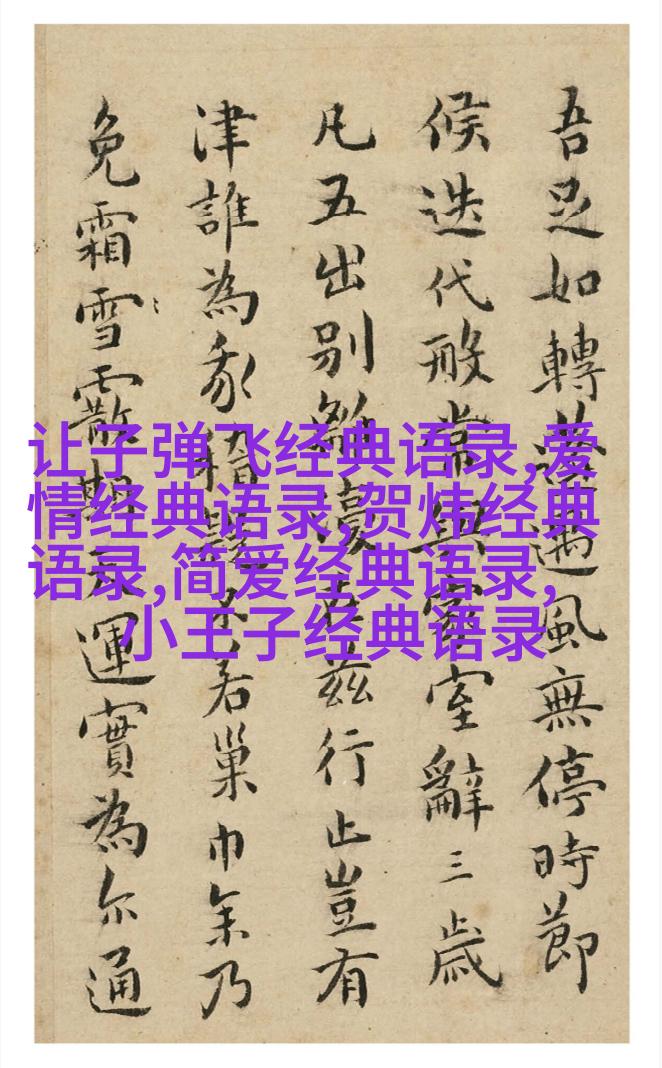 吾足如轉遇風無停時節
候迭代殷常與室辭三歲
凡五出別離茲行止豈有
津誰為不若巢巾年乃
免霜雪霰期天運實為尔通
让子弹飞经典语录,爱
情经典语录,贺炜经典
语录,简爱经典语录,
小王子经典语录